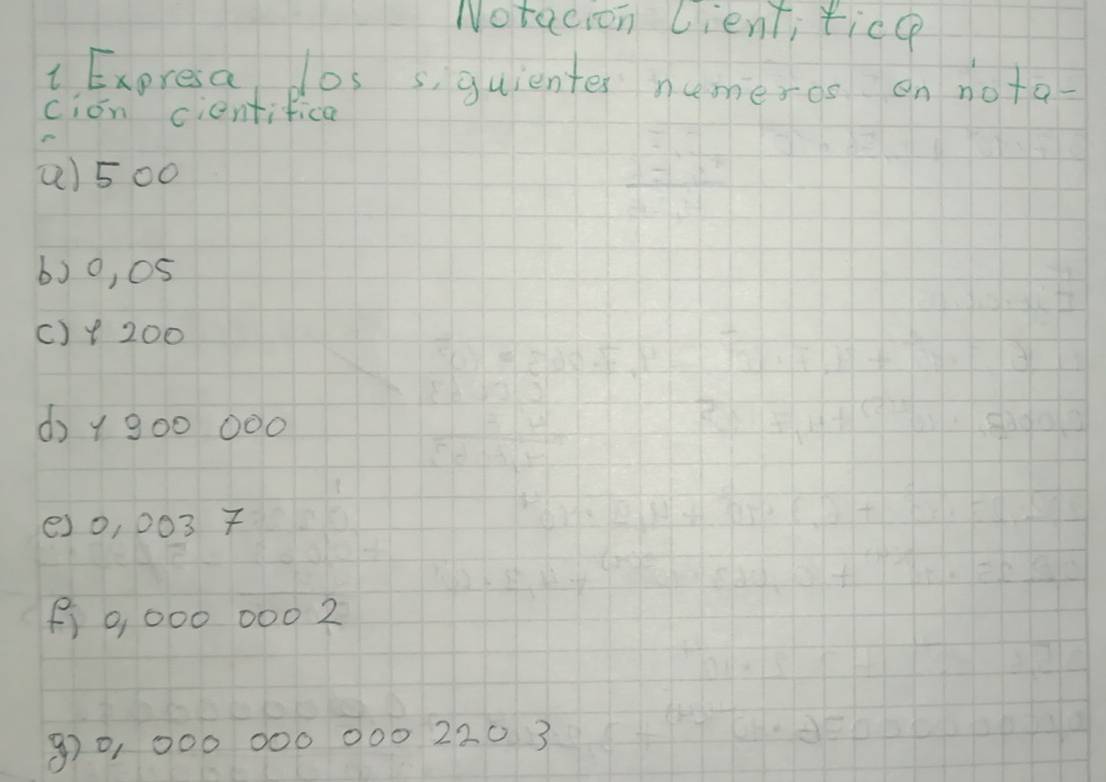 Notación Científica
1 Expresa los siguientes números en nota-
ción científica
a) 500
b) 0,05
c) 1 200
d) 1 900 000
e) 0,003 7
f) 0,000 000 2
g) 0, 000 000 000 220 3